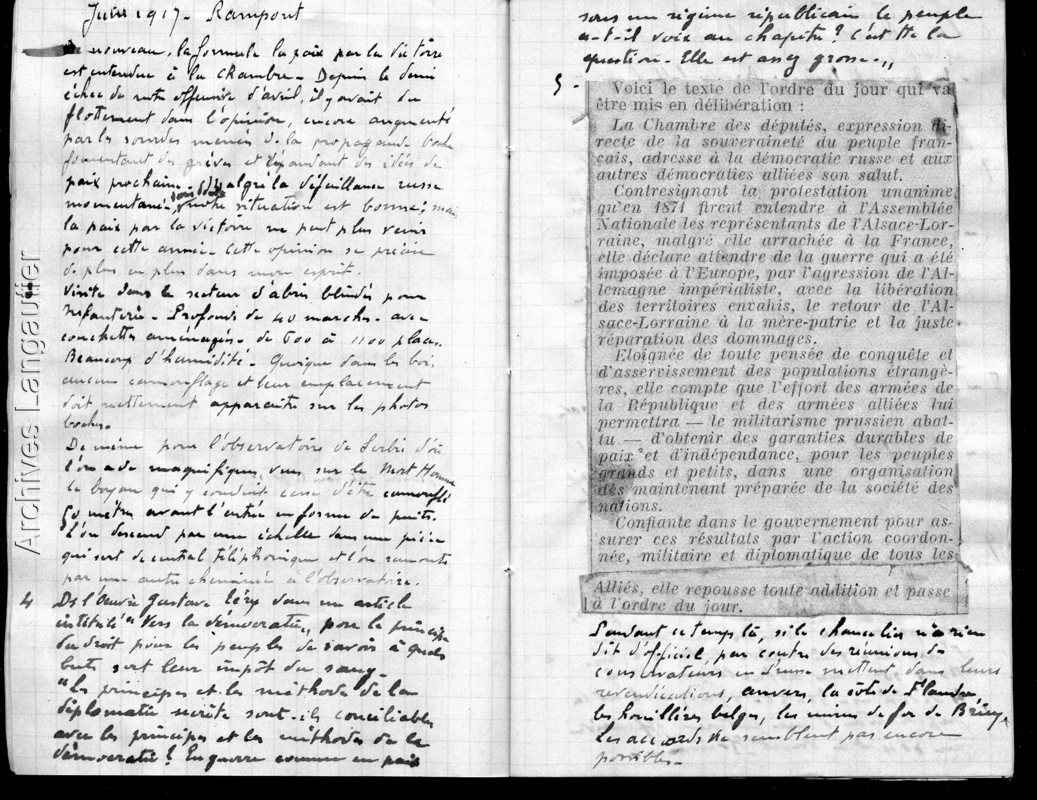 Juin 1917 - Rampont
De nouveau, la formule la paix par la victoire
est entendue à la Chambre - Depuis le demi
échec de notre offensive d'avril, il y avait du
flottement dans l'opinion, encore augmenté
par les sourdes menées de la propagande boche
fomentant des grèves et répandant des idées de
paix prochaine. Malgré la défaillance russe
momentanée, notre situation est bonne; mais
la paix par la victoire ne peut plus venir
pour cette année - Cette opinion se précise
de plus en plus dans mon esprit.
3 Visite dans le secteur d'abris blindés pour
Infanterie - Profonds de 40 marches - avec
couchettes aménagées - de 600 à 1100 places.
Beaucoup d'humidité - Quoique dans les bois,
aucun camouflage et leur emplacement
doit nettement apparaître sur les photos
boches.
De même pour l'observatoire de d'où
l'on a de magnifiques vues sur le Mort Homme
le boyau qui y conduit cesse d'être camouflé
50 mètres avant l'entrée en forme de puits.
L'on descend par une échelle dans une pièce
qui sert de central téléphonique et l'on remonte
par une autre cheminée à l'observatoire.
4 Ds l'Oeuvre Gustave Téry dans un article
intitulé "Vers la démocratie", pose le principe
du droit pour les peuples de savoir à quels
buts sert leur impôt du sang
"Les principes et les méthodes de la
diplomatie secrète sont-ils conciliables
avec les principes et les méthodes de la
démocratie? En guerre comme en paix
sous un régime républicain le peuple
a-t-il voix au chapitre? C'est tte la
question - Elle est assez grosse -"
5 - Voici le texte de l'ordre du jour qui va
être mis en délibération :
La Chambre des députés, expression di-
recte de la souveraineté du peuple fran-
çais, adresse à la démocratie russe et aux
autres démocraties alliées son salut.
Contresignant la protestation unanime
qu'en 1871 firent entendre à l'Assemblée
Nationale les représentants de l'Alsace-Lor-
raine, malgré elle arrachée à la France,
elle déclare attendre de la guerre qui a été
imposée à l'Europe, par l'agression de l'Al-
lemagne impérialiste, avec la libération
des territoires envahis, le retour de l'Al-
sace-Lorraine à la mère-patrie et la juste
réparation des dommages.
Eloignée de toute pensée de conquête et
d'asservissement des populations étrangè-
res, elle compte que l'effort des armées de
la République et des armées alliées lui
permettra — le militarisme prussien abat-
tu — d'obtenir des garanties durables de
paix et d'indépendance, pour les peuples
grands et petits, dans une organisation
dès maintenant préparée de la société des
nations.
Confiante dans le gouvernement pour as-
surer ces résultats par l'action coordon-
née, militaire et diplomatique de tous les
Alliés, elle repousse toute addition et passe
à l'ordre du jour.
Pendant ce temps là, si le chancelier n'a rien
dit d'officiel, par contre des réunions de
conservateurs mettent dans leurs
revendications, Anvers, la côte de Flandre,
les houillères belges, les mines de fer de Briey.
Les accords ne semblent pas encore
possibles -
Archives Langautier